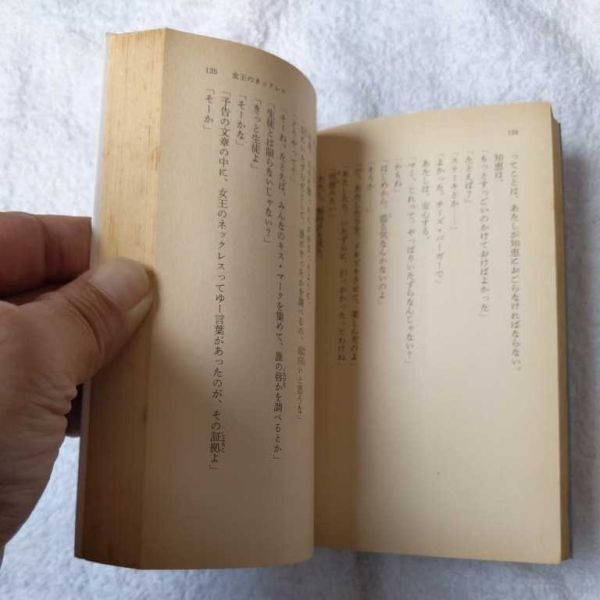 134
ってことは、あたしが知恵におごらなければならない。
知恵は、
「もっとすっごいのかけておけばよかった」
「たとえば？」
「ステーキとか──」
「よかった。チーズ・バーガーで」
あたしは、安心する。
「マミ、これって、やっぱりいたずらなんじゃない？」
「かもね」
「はじめから、
なんかないのよ」
「そうか」
135 女王のネックレス
「そーね。たとえば、みんなのキス・マークを集めて、誰の唇かを調べるとか」
「生徒とは限らないじゃない？」
「きっと生徒よ」
「そーかな」
「予告の文章の中に、女王のネックレスってゆー言葉があったのが、その証拠よ」
「そーか」